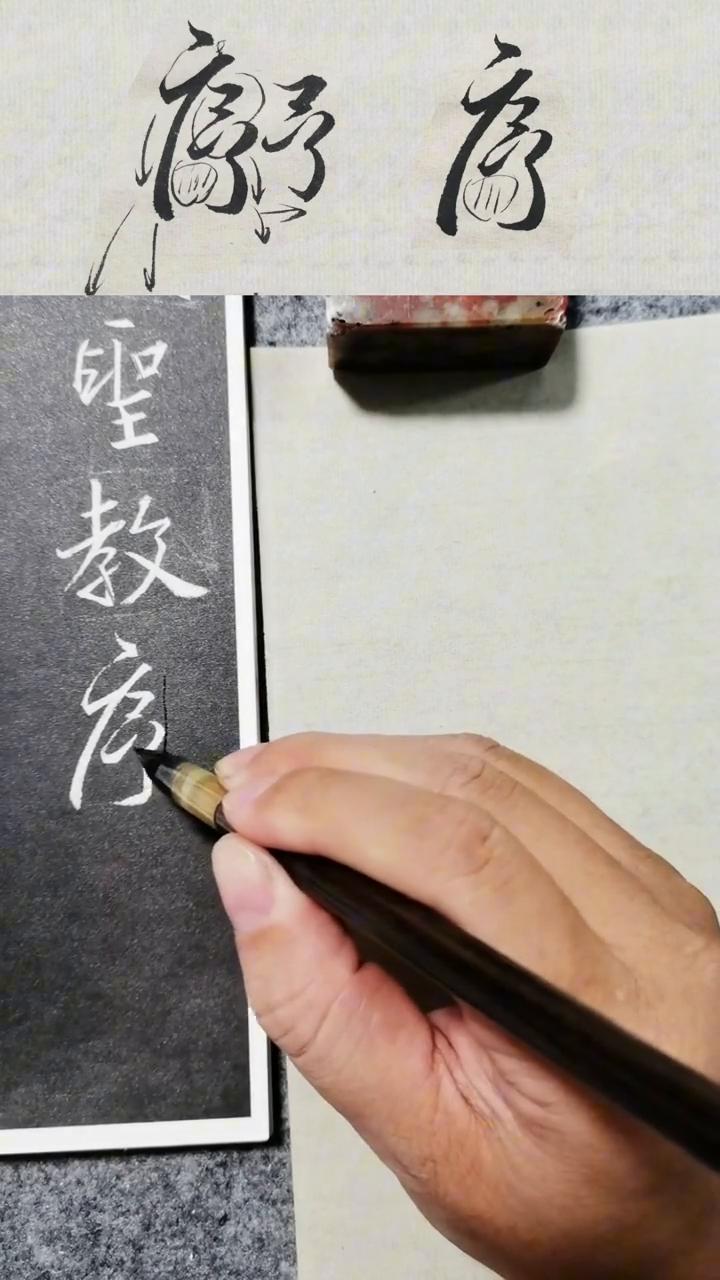 序予 序
聖
教
序